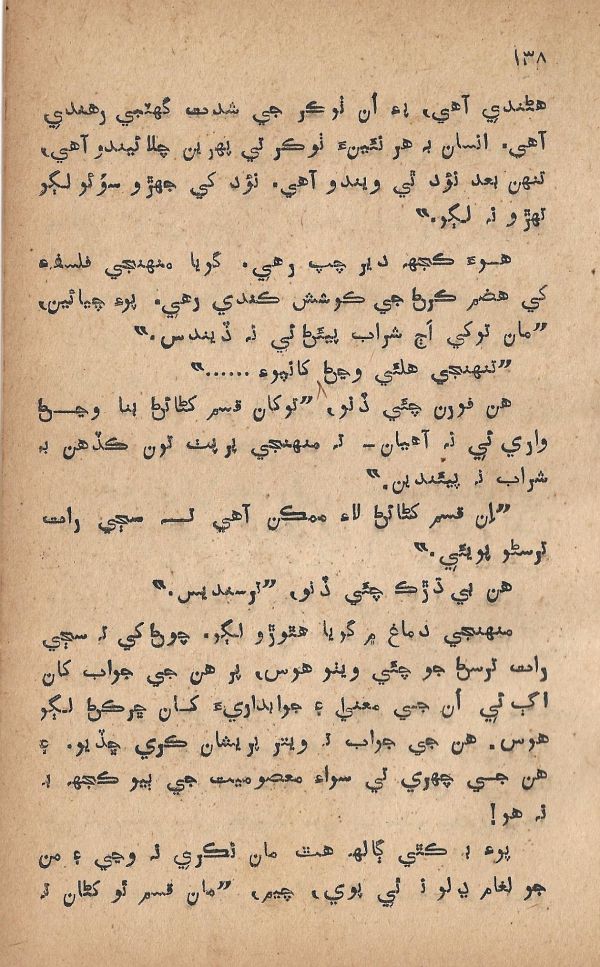 ۱۳۸
هڻندي آهي، ۽ اُن ٺوڪر جي شدت گھٽجي رهندي
آهي. انسان ٻه هر نئينءَ ٺوڪر تي پهرين چلائيندو آهي،
تنهن بعد ٺؤد ٿي ويندو آهي. ٺؤد کي جهڙو سؤٽو لڳو
تهڙو نه لڳو.”
هـوءَ ڪجهه دير چپ رهي. گويا منهنجي فلسفه
کي هضم ڪرڻ جي ڪوشش ڪندي رهي. پوءِ چيائين،
”مان توکي اڄ شراب پيئڻ ئي نه ڏيندس.”
”تنهنجي هلئي وڃڻ کانپوءِ ......”
هن فورن چئي ڏنو، ”توکان قسم کڻائڻ بنا وڃـڻ
واري ئي نه آهيان- ته منهنجي پرپٺ تون ڪڏهن به
شراب نه پيئندين.”
”اِن قسم کڻائڻ لاءِ ممڪن آهي تـہ سڄي رات
ترسڻو پويئي.”
هن بي ڌڙڪ چئي ڏنو، ”ترسنديس.”
منهنجي دماغ ۾ گويا هٿوڙو لڳو. چوڻ کي ته سڄي
رات ترسڻ جو چئي ويٺو هوس، پر هن جي جواب کان
اڳ ئي اُن جـي معنيٰ ۽ جوابداريءَ کـان ڇرڪڻ لـڳو
هوس. هن جي جواب ته ويتر پريشان ڪري ڇڏيو. ۽
هن جـي چهري تي سواءِ معصوميت جي ٻيو ڪجهه به
نه هو!
پوءِ به ڪٿي ڳالهه هٿ مان نڪري نه وڃي ۽ من
جو لغام ڍلو نه ٿي پوي، چيم، ”مان قسم ٿو کڻان ته